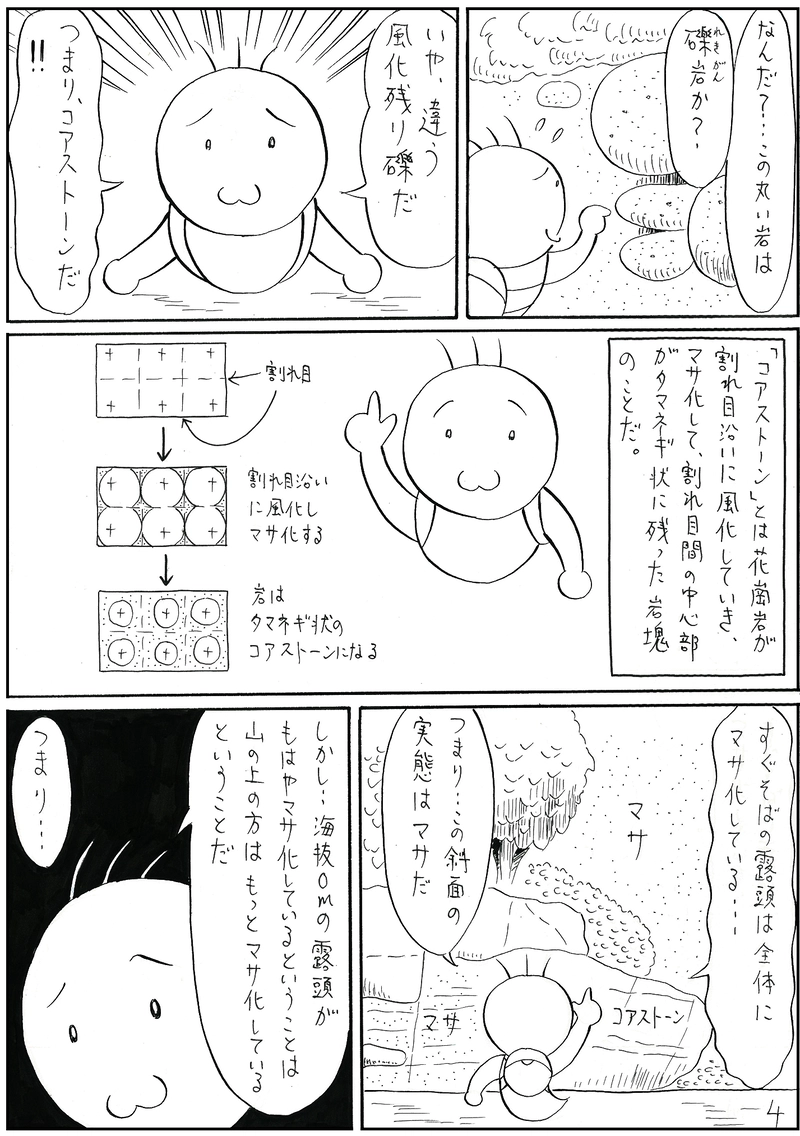 なんだ？…この丸い岩は
礫岩か？
れきがん
いや、違う
風化残り礫だ
つまり、コアストーンだ
!!
「コアストーン」とは花崗岩が
割れ目沿いに風化していき、
マサ化して、割れ目間の中心部
がタマネギ状に残った岩塊
のことだ。
割れ目
割れ目沿い
に風化し
マサ化する
岩は
タマネギ状の
コアストーンになる
すぐそばの露頭は全体に
マサ化している…
つまり…この斜面の
実態はマサだ
マサ
マサ
コアストーン
しかし…海抜0mの露頭が
もはやマサ化しているということは
山の上の方はもっとマサ化している
ということだ
つまり…
4